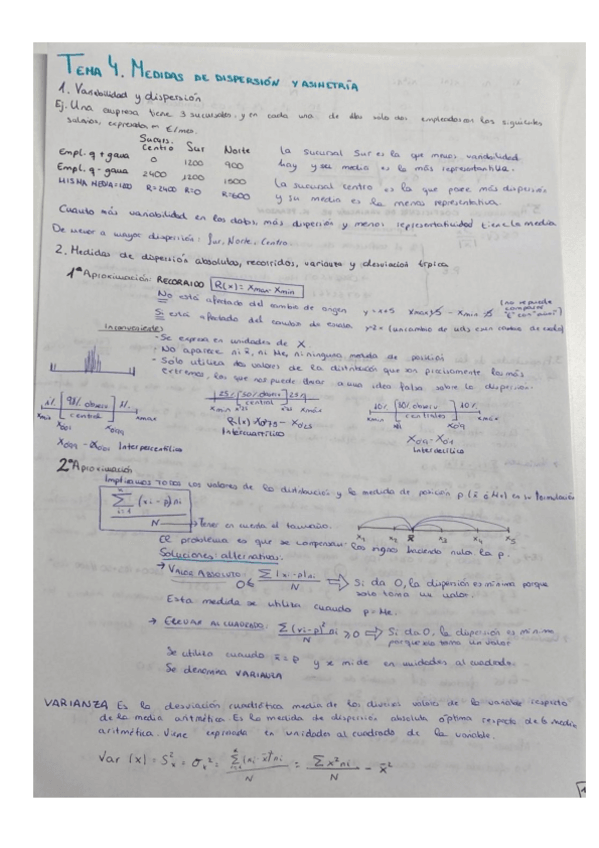 TEMA 4. MEDIDAS DE DISPERSIÓN Y ASIMETRÍA
1. Variabilidad y dispersión
Ej. Una empresa tiene 3 sucursales, y en cada una de ellas solo dos empleados con los siguientes
salarios, expresados en €/mes.
Sucurs. Centro Sur Norte
Empl. q + gana 0 1200 900
Empl. q - gana 2400 1200 1500
MISMA MEDIA=1200 R=2400 R=0 R=600
La sucursal Sur es la que menos variabilidad
hay y su media es la más representativa.
La sucursal centro es la que posee más dispersión
y su media es la menos representativa.
Cuanto más variabilidad en los datos, más dispersión y menos representatividad tiene la media
De menor a mayor dispersión: Sur, Norte, Centro.
2. Medidas de dispersión absolutas, recorridos, varianza y desviación típica
1ª Aproximación: RECORRIDO R(x) = Xmax - Xmin
No está afectado del cambio de origen y=x+5 Xmax+5 - Xmin+5
Sí está afectado del cambio de escala
Inconvenientes
- Se expresa en unidades de X.
- No aparece ni x̄, ni Me, ni ninguna medida de posición
- Solo utiliza dos valores de la distribución que son precisamente los más
extremos, los que nos puede llevar a una idea falsa sobre la dispersión.
1% [98% observ central] 1%
Xmin X0'01 X0'99 Xmax
X0'99 - X0'01 Interpercentílico
25% [50% observ central] 25%
Xmin X0'25 X0'75 Xmáx
R(x) X0'75 - X0'25
Intercuartílico
10% [80% observ centrales] 10%
Xmin X0'1 X0'9 Xmax
X0'9 - X0'1
Interdecílico
2ª Aproximación
Implicamos TODOS los valores de la distribución y la medida de posición p (x̄ o Me) en su formulación
Σ (xi - p) ni
i=1
N → Tener en cuenta el tamaño.
x1 x2 x̄ x3 x4 x5
El problema es que se compensan los signos haciendo nula la p.
Soluciones alternativas.
→ VALOR ABSOLUTO: 0 ≤ Σ |xi-p| ni / N ⇒ Si da 0, la dispersión es mínima porque
solo toma un valor.
Esta medida se utiliza cuando p=Me.
→ ELEVAR AL CUADRADO: Σ (xi-p)² ni / N ≥ 0 ⇒ Si da 0, la dispersión es mínima
porque solo toma un valor
Se utiliza cuando x̄ = p y se mide en unidades al cuadrado.
Se denomina VARIANZA
VARIANZA Es la desviación cuadrática media de los diversos valores de la variable respecto
de la media aritmética. Es la medida de dispersión absoluta óptima respecto de la media
aritmética. Viene expresada en unidades al cuadrado de la variable.
Var (x) = S²x = σx² = Σ (xi - x̄)² ni / N = Σ x² ni / N - x̄²